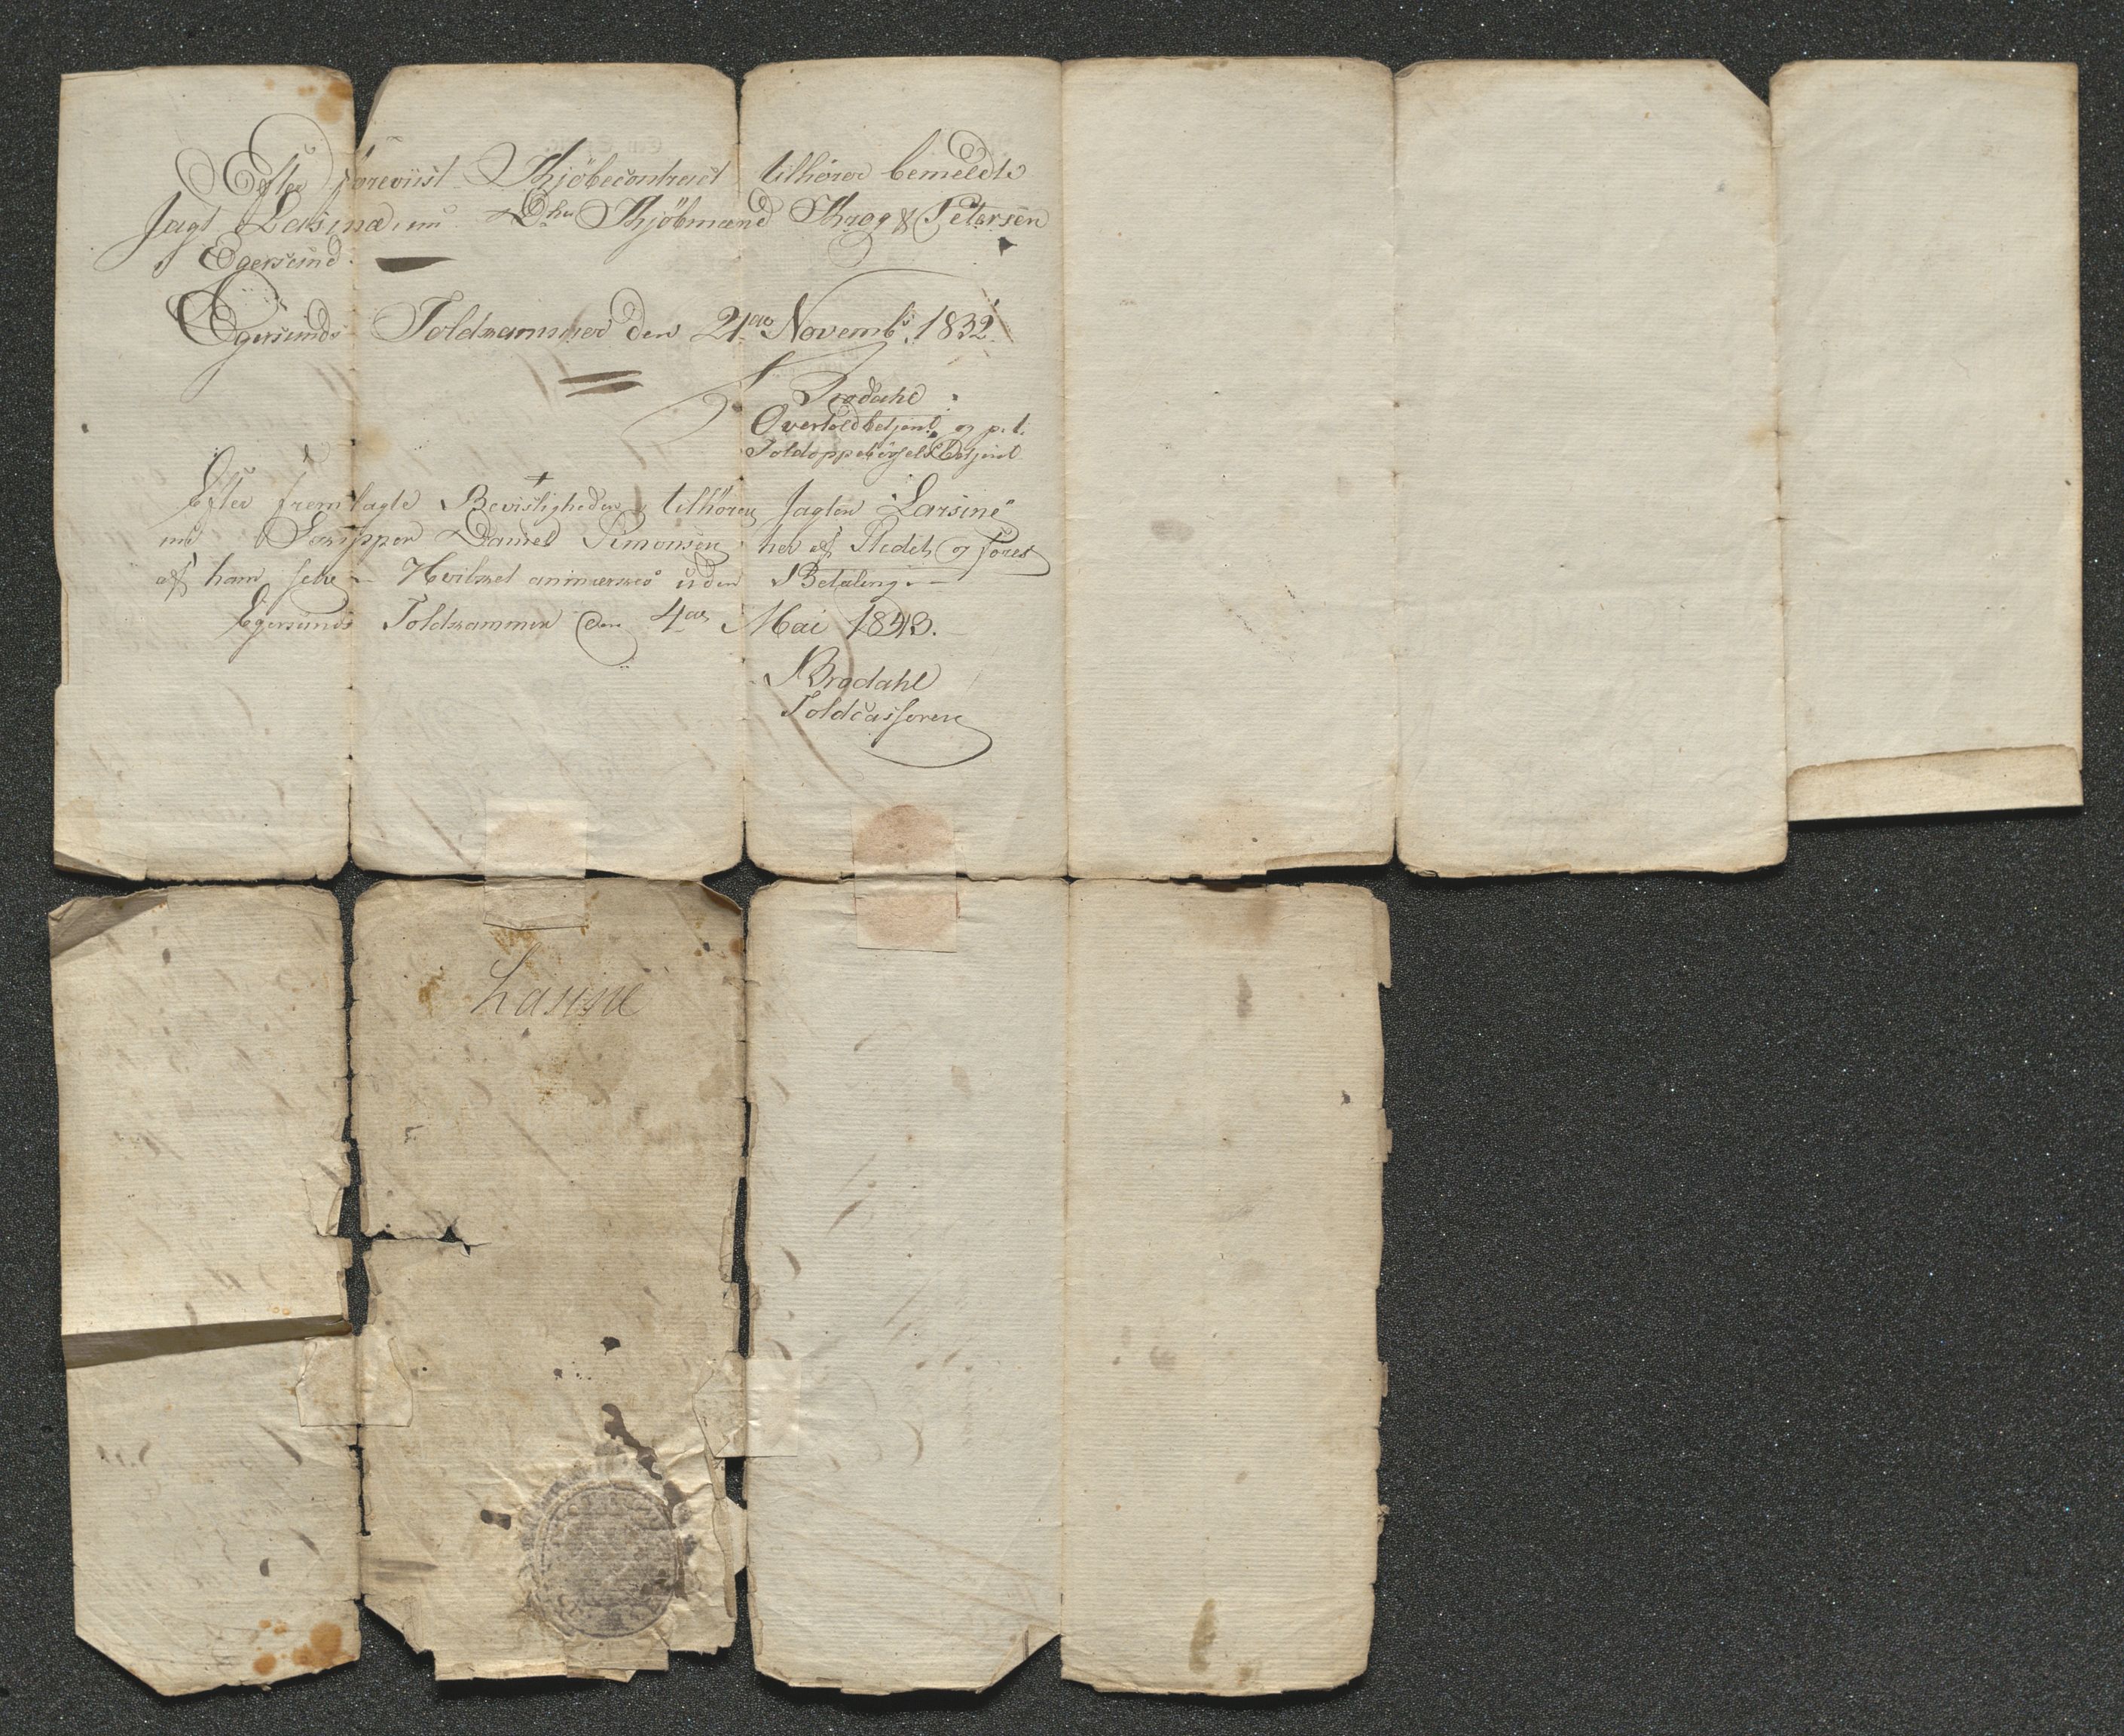 Efter foreviist Khjöbecontract tilhører bemeldte
Jagt Larsina, nu Dhrr Khjöbmænd Khrog & Petersen
Egersund.
Egersunds Toldkammer den 21de Novembr. 1832.
Brodahl
Overtoldbetjent og p. t.
Toldoppebörsels Betjent
Efter fremlagte Bevisligheder tilhører Jagten Larsine
nu Skipper Daniel Simonsen her af Stedet og føres
af ham selv – Hvilket anmærkes uden Betaling. –
Egersunds Toldkammer den 4de Mai 1843.
Brodahl
Toldcasserer
Larsine